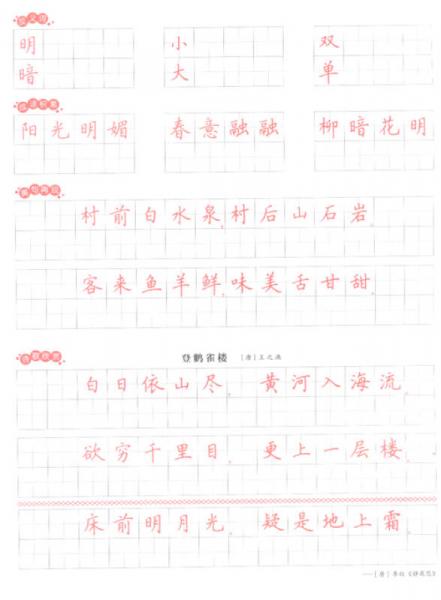 反义词
明 小 双
暗 大 单
成语积累
阳光明媚 春意融融 柳暗花明
村前白水泉，村后山石岩。
客来鱼羊鲜，味美舌甘甜。
登鹳雀楼 [唐]王之涣
白日依山尽，黄河入海流。
欲穷千里目，更上一层楼。
床前明月光，疑是地上霜。
——[唐]李白《静夜思》